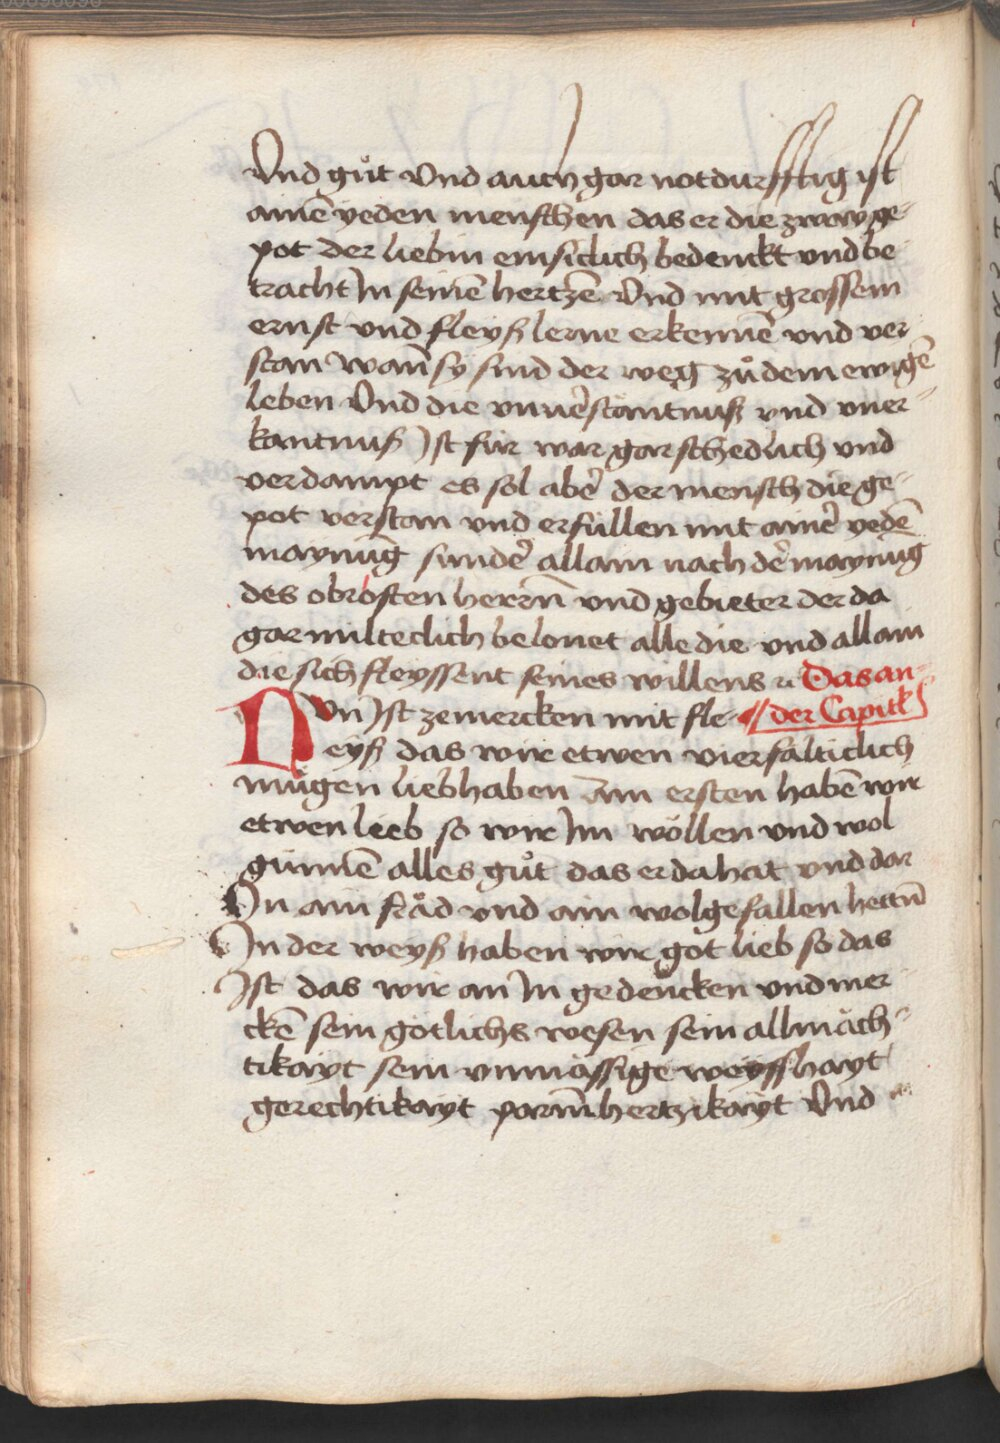 Vnd gůt Vnd auch gar notdurfftig ist
ainē yeden menschen das er die zway ge-
pot der liebin emsiclich bedenckt vnd be
tracht In seinē hertzē Vnd mit grossem
ernst vnd fleyß lerne erkennē vnd ver
stan wan̄ sy sind der weg zů dem ewigē
leben Vnd die vnuerstantnuß vnd vner-
kantnuß Ist für war gar schedlich vnd
verdampt es sol aber der mensch die ge-
pot verstan vnd erfüllen mit ainer yedē
maynūg sunder allain nach der maynūg
des obrosten herrn̄ vnd gebieter der da
gar milteclich belonet alle die vnd allain
die sich fleyssent seines willens Das an-
Nvn Ist zemercken mit fle- der Capitl
eyß das wir etwen vierfalticlich
mügen liebhaben Am ersten habē wir
etwen lieb so wir Im wöllen vnd wol
günnē alles gůt das er da hat vnd dar
In ain fräd vnd ain wolgefallen hettn̄
In der weyß haben wir got lieb so das
Ist das wir an In gedencken vnd mer
ckē sein götlichs wesen sein allmäch-
tikayt sein vnmässige weyßhayt
gerechtikayt parmhertzikayt Vnd